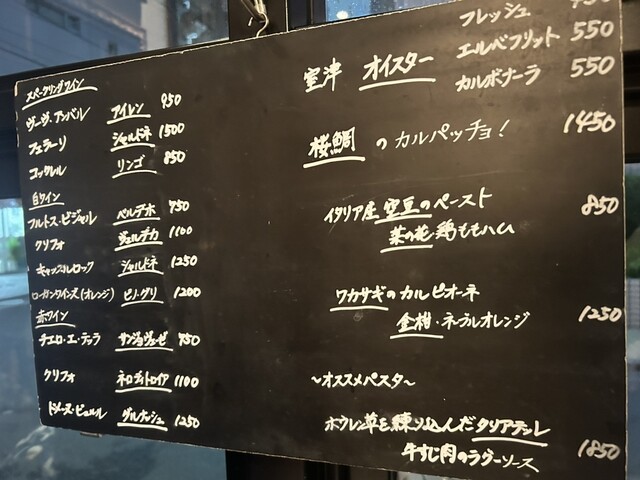 スパークリングワイン
ヴーヴ・アンバル アイレン 950
フェラーリ シャルドネ 1500
コックレル リンゴ 850
白ワイン
フルトス・ビジャル ベルデホ 750
クリフォ ヴェルデカ 1100
キャッスルロック シャルドネ 1250
ローガンワインズ(オレンジ) ピノ・グリ 1200
赤ワイン
チエロ・エ・テッラ サンジョヴェーゼ 750
クリフォ ネロディトロイア 1100
ドメーヌ・ピュル グルナッシュ 1250
室津 オイスター
フレッシュ
エルベフリット 550
カルボナーラ 550
桜鯛 の カルパッチョ! 1450
イタリア産 空豆のペースト 850
菜の花 鶏ももハム
ワカサギのカルピオーネ
金柑・ネーブルオレンジ 1250
〜オススメパスタ〜
ホウレン草を練り込んだタリアテッレ
牛すじ肉のラグーソース 1850